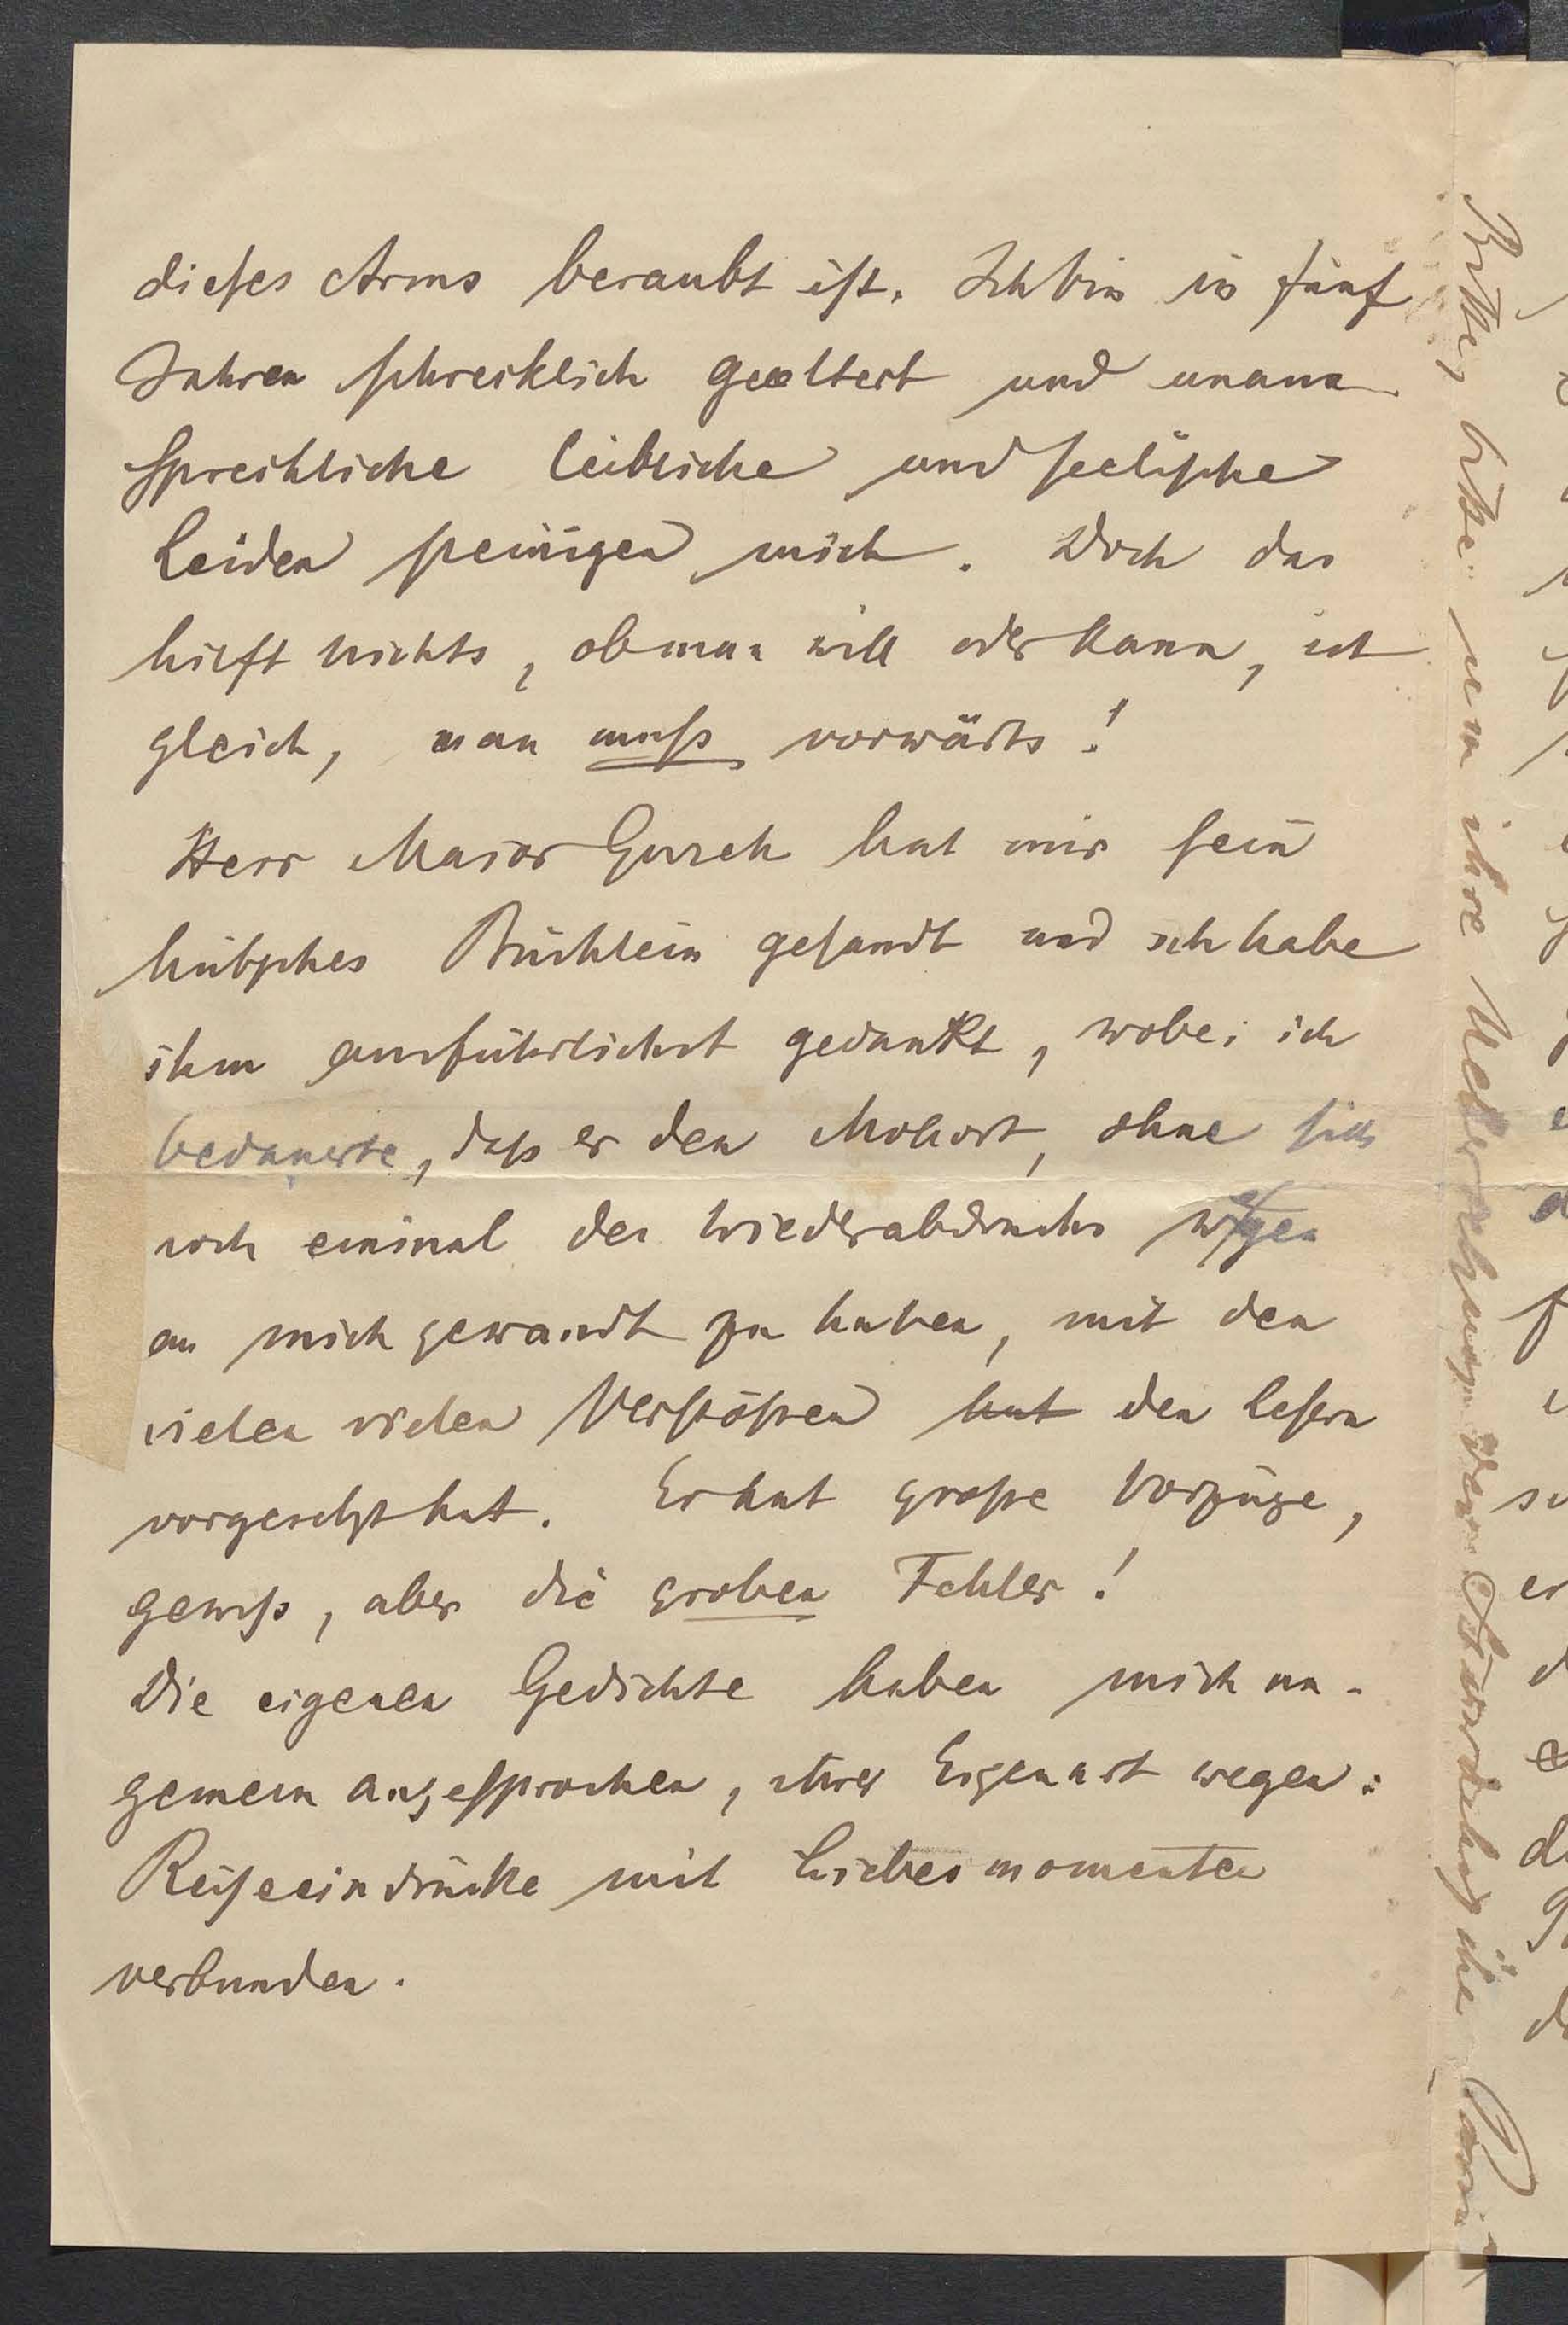 dieses Arms beraubt ist. Ich bin in fünf
Jahren schrecklich gealtert und unaus
sprechliche leibliche und seelische
Leiden peinigen mich. Doch das
hilft nichts, ob man will oder kann, ist
gleich, man muss vorwärts!
Herr Major hat mir sein
hübsches Büchlein gesandt und ich habe
ihm ausführlichst gedankt, wobei ich
bedauerte, dass er den Mohort, ohne sich
noch einmal des Wiederabdrucks wegen
an mich gewandt zu haben, mit den
vielen vielen Verstössen hat den Lesern
vorgesetzt hat. Er hat grosse Vorzüge,
gewiss, aber die groben Fehler!
Die eigenen Gedichte haben mich un-
gemein angesprochen, ihrer Eigenart wegen:
Reiseeindrücke mit Liebesmomenten
verbunden.
Bitte, bitte um ihre